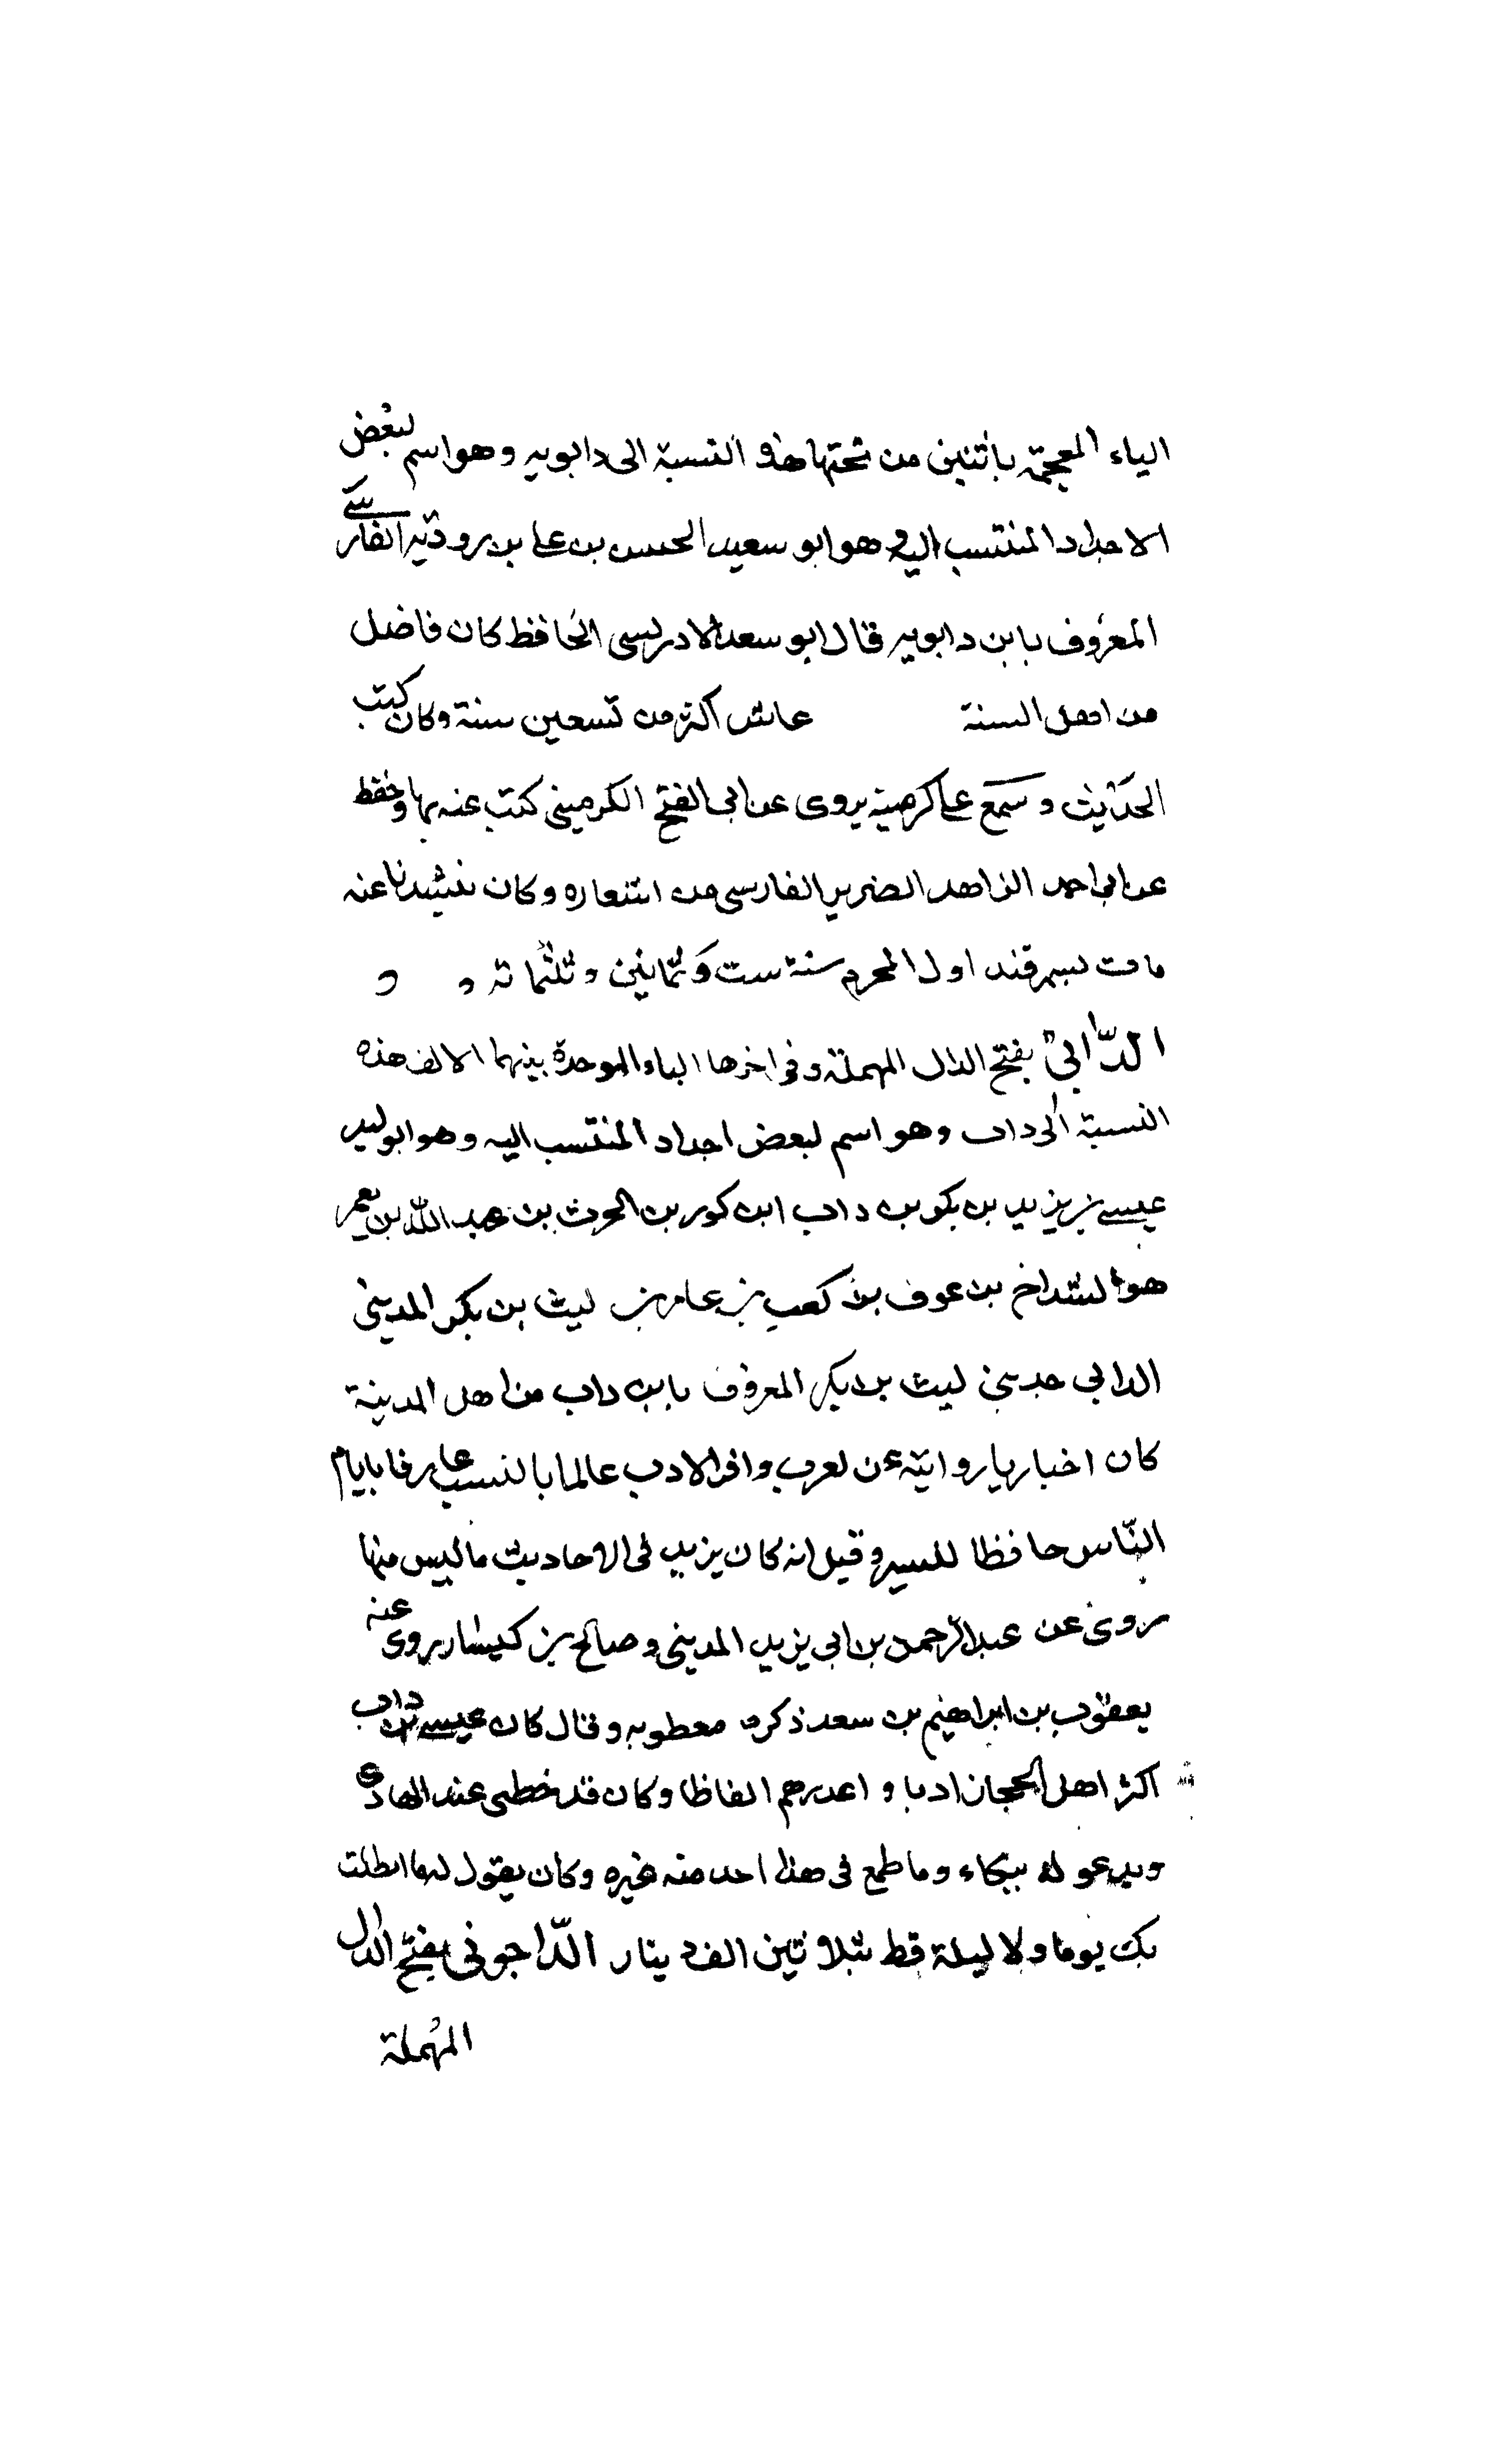 الياء المعجمة باثنين من تحتها هذه النسبة الى دابويه وهو اسم لبعض
الاجداد المنتسب اليه وهو ابو سعيد الحسن بن على بن الفارسى
المعروف بابن دابويه قال ابو سعد الادريسى الحافظ كان فاضل
من اهل السنة عاش اكثر من تسعين سنة وكان كتب
الحديث وسمع على كرمينه يروى عن ابى الفتح الكرمينى كتب عنه بها وحفظ
عن ابى احمد الزاهد الضرير الفارسى من اشعاره وكان ينشدنا عنه
مات بسمرقند اول المحرم سنة ست وثمانين وثلثمائة
الدّابىّ بفتح الدال المهملة وفى اخرها الباء الموحدة بينهما الالف هذه
النسبة الى داب وهو اسم لبعض اجداد المنتسب اليه وهو ابو ليد
عيسى بن يزيد بن بكر بن داب ابن كور بن الحرث بن عبد الله بن يعمر
هو الشداخ بن عوف بن كعب بن عامر بن ليث بن بكر المدينى
الدابى ليث بن بكر المعروف بابن داب من اهل المدينة
كان اخباريا رواية عن لعرب وافر الادب عالما بالنسب عارفا بايام
النّاس حافظا للسير وقيل انه كان يزيد فى الاحاديث ما ليس منها
روى عن عبد الرحمن بن ابى يزيد المدينى وصالح بن كيسان روى عنه
يعقوب بن ابراهيم بن سعد ذكره وقال كان عيسى بن داب
اكثر اهل الحجاز ادبا و اعذبهم الفاظا وكان قد حظى عند الهادى
ويدعو له وما طمع فى هذا احد منه غيره وكان يقول له ما استطلت
بك يوما ولا ليلة قط بثلاثين الف دينار الدّاجونى بفتح الدال
المهملة